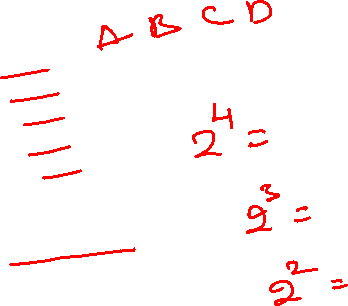 A B C D
2⁴ =
2³ =
2² =